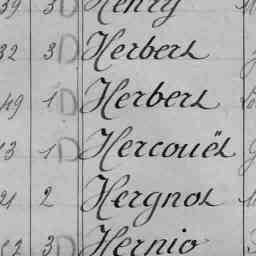 39 3 Henry
32 3 D Herbert
49 1 D Herbert
13 1 D Hercouët
21 2 Hergnot
52 3 D Hernio